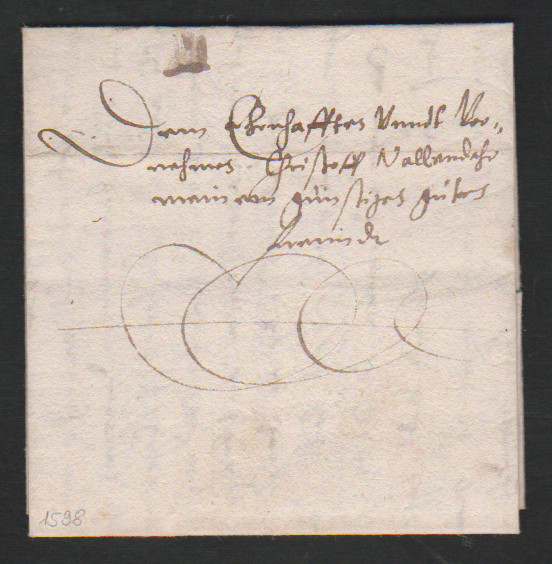 Dem Ehrnhafften Vnndt Vor=
nehmen Christoff Vallendahr
meinem günstigen guten
freundt
1598